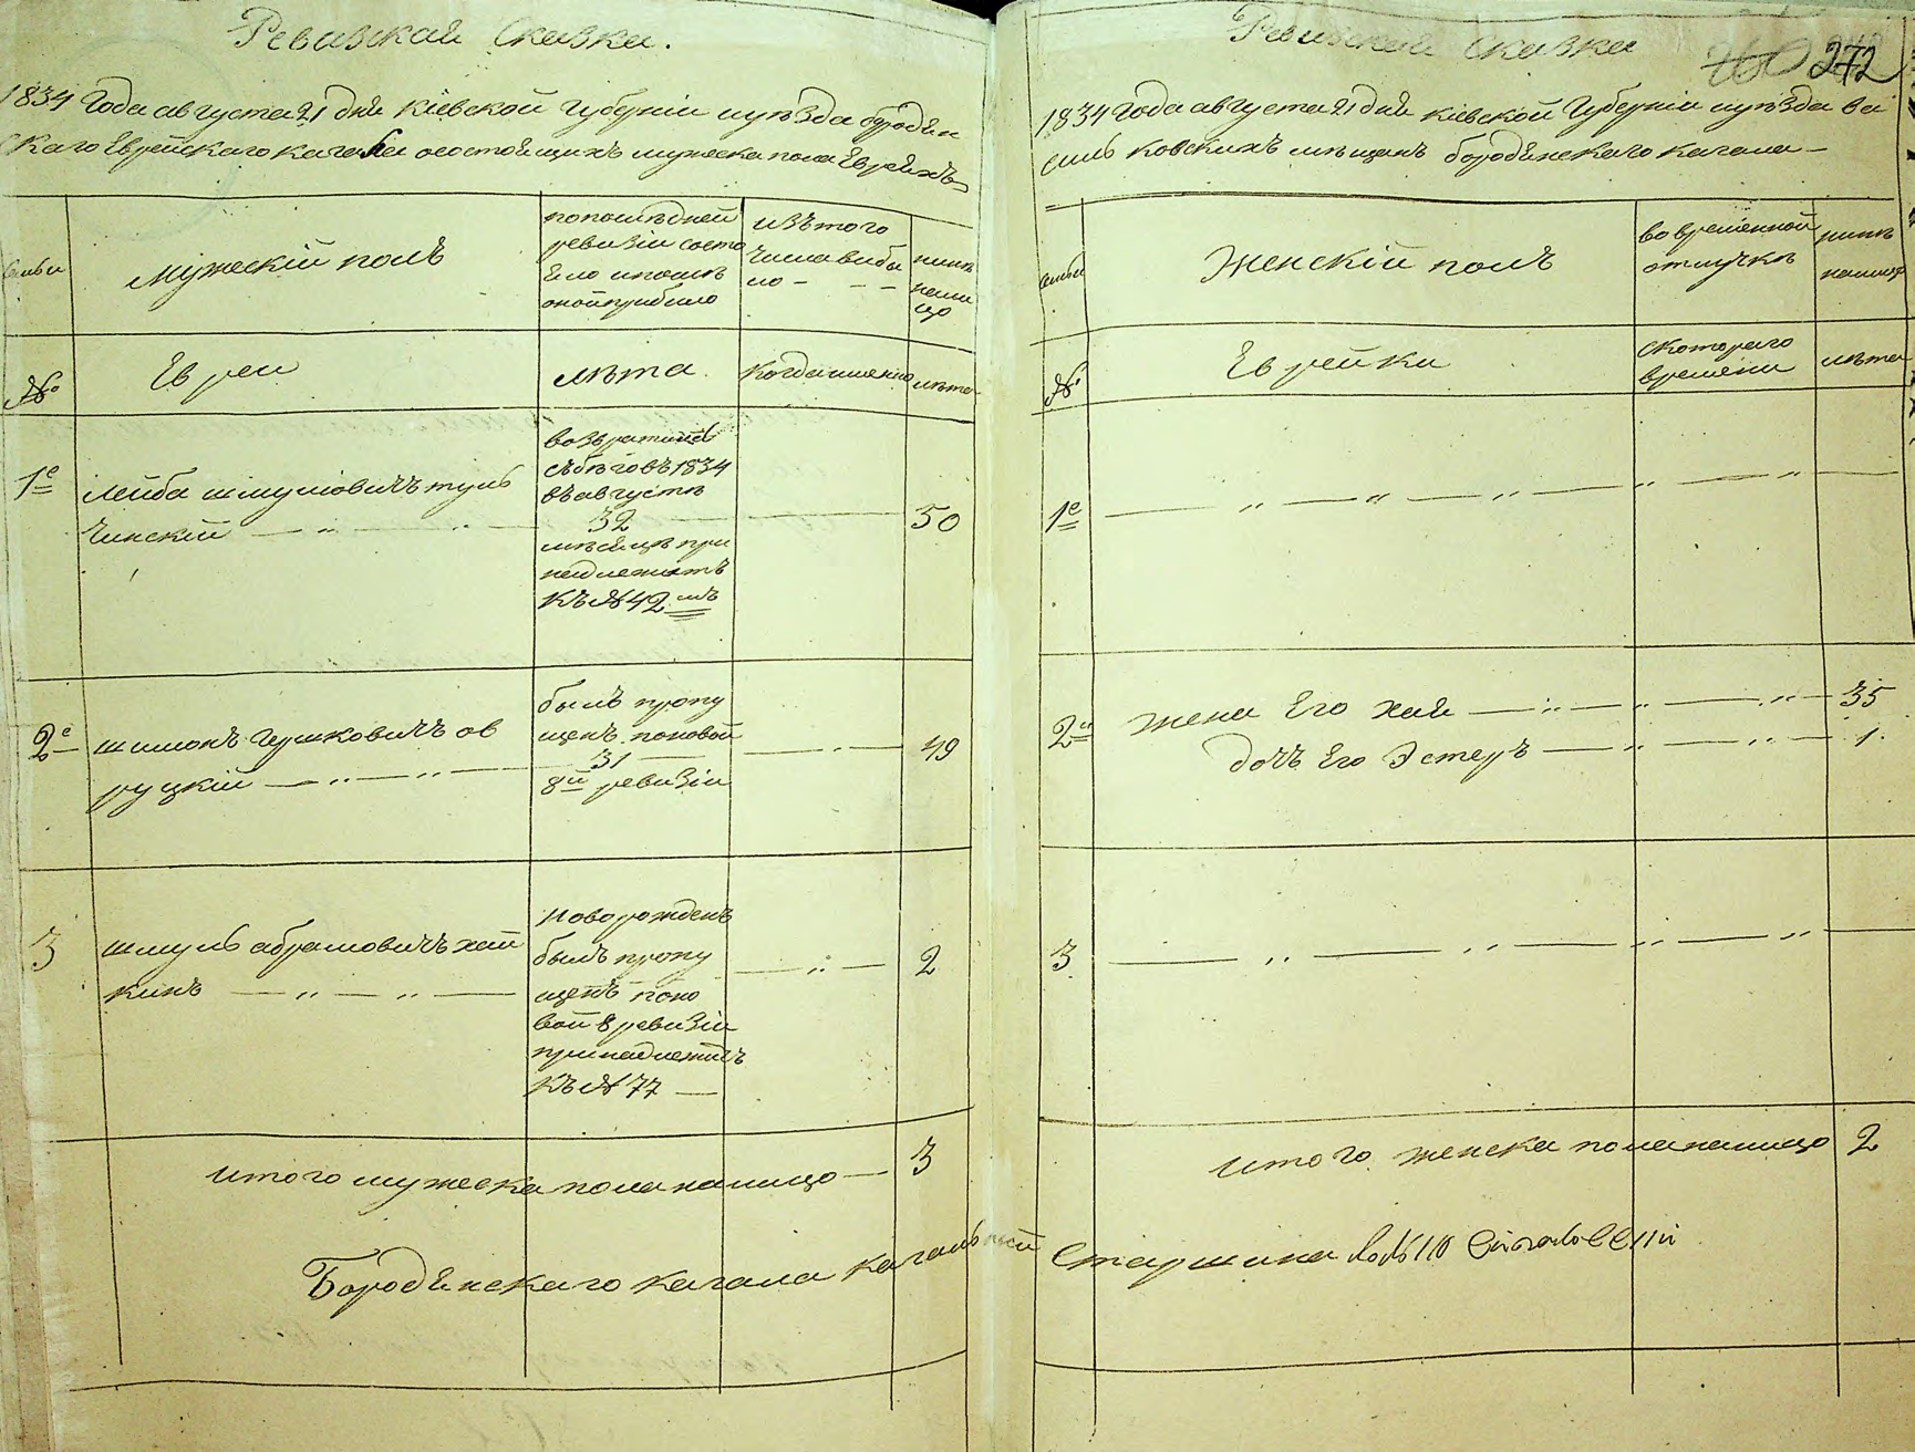 Ревизкая Сказка.
1834 Года августа 21 дня Кіевской Губерніи
скаго Еврейскаго Кагала осостоящихъ мужеска пола Евреяхъ
Мужескій полъ
попоследней
ревизіи состо
яло ипосле
оной прибыло
изътого
числа выбы
ло - - -
ныне
нали
цо
№
Евреи
лѣта
когда именно
лѣта
1е
Лейба шмуліовичъ туль
чинскій — „ — „ —
возвратился
съ бѣговъ 1834
въ августѣ
32
месяцѣ при
надлежитъ
Къ № 42 мъ
50
2е
шимонъ Гершковичъ ов
руцкій — „ — „ —
былъ пропу
щенъ поновой
31
8й ревизіи
— „ —
49
3
шмуль абрамовичъ хай
кинъ — „ — „ —
новорожденъ
былъ пропу
щенъ поно
вой 8 ревизіи
принадлежитъ
Къ № 77 —
— „ —
2
итого мужеска пола налицо — 3
Бородянскаго кагала кагальный
Ревизская Сказка
272
1834 Года августа 21 дня Кіевской Губерніи уѣзда ва
сильковскихъ мещанъ бородянскаго кагала —
Женскій полъ
во временной
отлучке
ныне
налицо
№
Еврейки
скотораго
времени
лѣта
1е
— „ — „ — „ — „ — „ —
2я
жена Его хая — „ — „ — „ — 35
дочь Его Эстеръ — „ — „ — 1.
3
— „ — „ — „ — „ —
итого женска пола налицо 2
Старшина